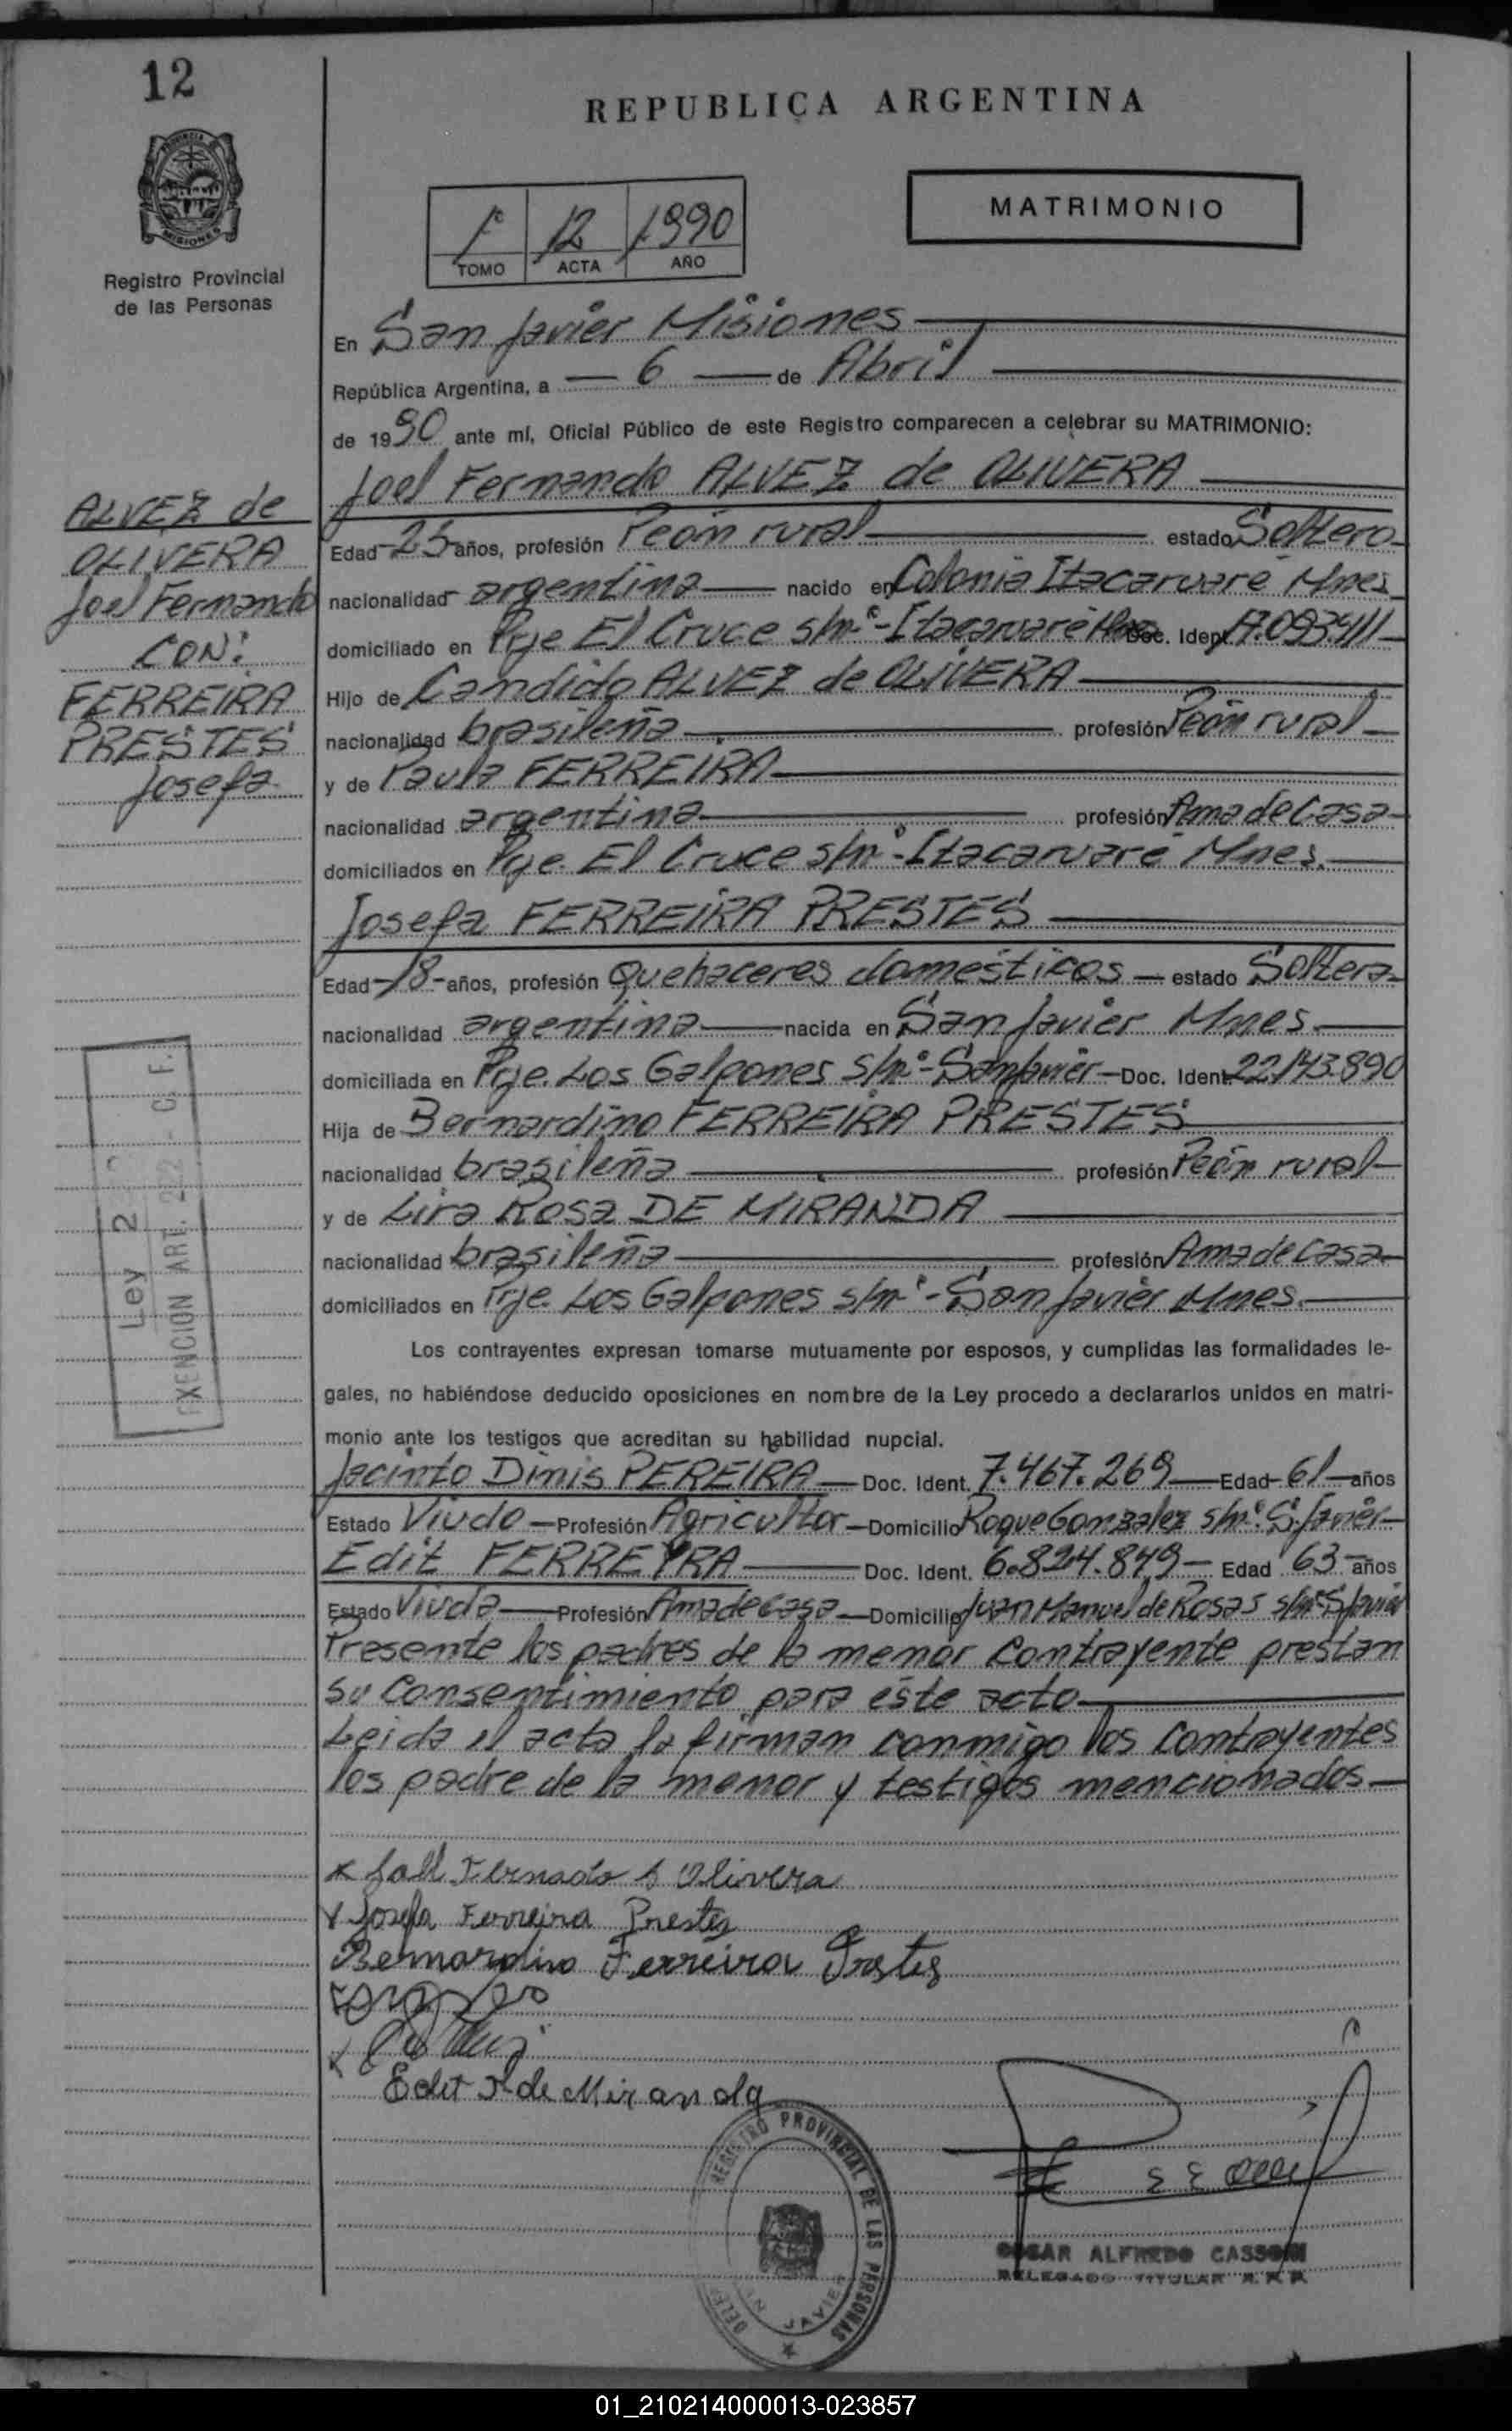 12
REPUBLICA ARGENTINA
MATRIMONIO
1º 12 1990
TOMO ACTA AÑO
PROVINCIA DE
MISIONES
Registro Provincial
de las Personas
En San Javier Misiones
República Argentina, a 6 de Abril
de 1990 ante mí, Oficial Público de este Registro comparecen a celebrar su MATRIMONIO:
Joel Fernando ALVEZ de OLIVERA
ALVEZ de
OLIVERA
Joel Fernando
CON:
FERREIRA
PRESTES
Josefa
Edad 25 años, profesión Peón rural estado Soltero
nacionalidad argentina nacido en Colonia Itacaruaré Mnes
domiciliado en Pje El Cruce s/nº - Itacaruaré Mnes Doc. Ident. 17.093411
Hijo de Candido ALVEZ de OLIVERA
nacionalidad brasileña profesión Peón rural
y de Paula FERREIRA
nacionalidad argentina profesión Ama de Casa
domiciliados en Pje. El Cruce s/nº - Itacaruaré Mnes.
Josefa FERREIRA PRESTES
Edad 18 años, profesión Quehaceres domésticos estado Soltera
nacionalidad argentina nacida en San Javier Mnes.
domiciliada en Pje. Los Galpones s/nº - San Javier Doc. Ident. 22.143.890
Hija de Bernardino FERREIRA PRESTES
nacionalidad brasileña profesión Peón rural
y de Lira Rosa DE MIRANDA
nacionalidad brasileña profesión Ama de casa
domiciliados en Pje. Los Galpones s/nº - San Javier Mnes.
Ley 2
EXENCION ART. 222 - C. F.
Los contrayentes expresan tomarse mutuamente por esposos, y cumplidas las formalidades le-
gales, no habiéndose deducido oposiciones en nombre de la Ley procedo a declararlos unidos en matri-
monio ante los testigos que acreditan su habilidad nupcial.
Jacinto Dinis PEREIRA Doc. Ident. 7.467.269 Edad 61 años
Estado Viudo Profesión Agricultor Domicilio Roque Gonzalez s/nº S. Javier
Edit FERREYRA Doc. Ident. 6.824.849 Edad 63 años
Estado Viuda Profesión Ama de casa Domicilio Juan Manuel de Rosas s/nº S. Javier
Presente los padres de la menor contrayente prestan
su consentimiento para este acto
Leida el acta la firman conmigo los contrayentes
los padre de la menor y testigos mencionados
x Joell Fernado A Olivera
x Josefa Ferreira Prestes
Bernardino Ferreira Prestes
x
Edit F. de Miranda
REGISTRO PROVINCIAL DE LAS PERSONAS
SAN JAVIER
ALFREDO CASSONI
DELEGADO TITULAR R. P. P.
01_210214000013-023857